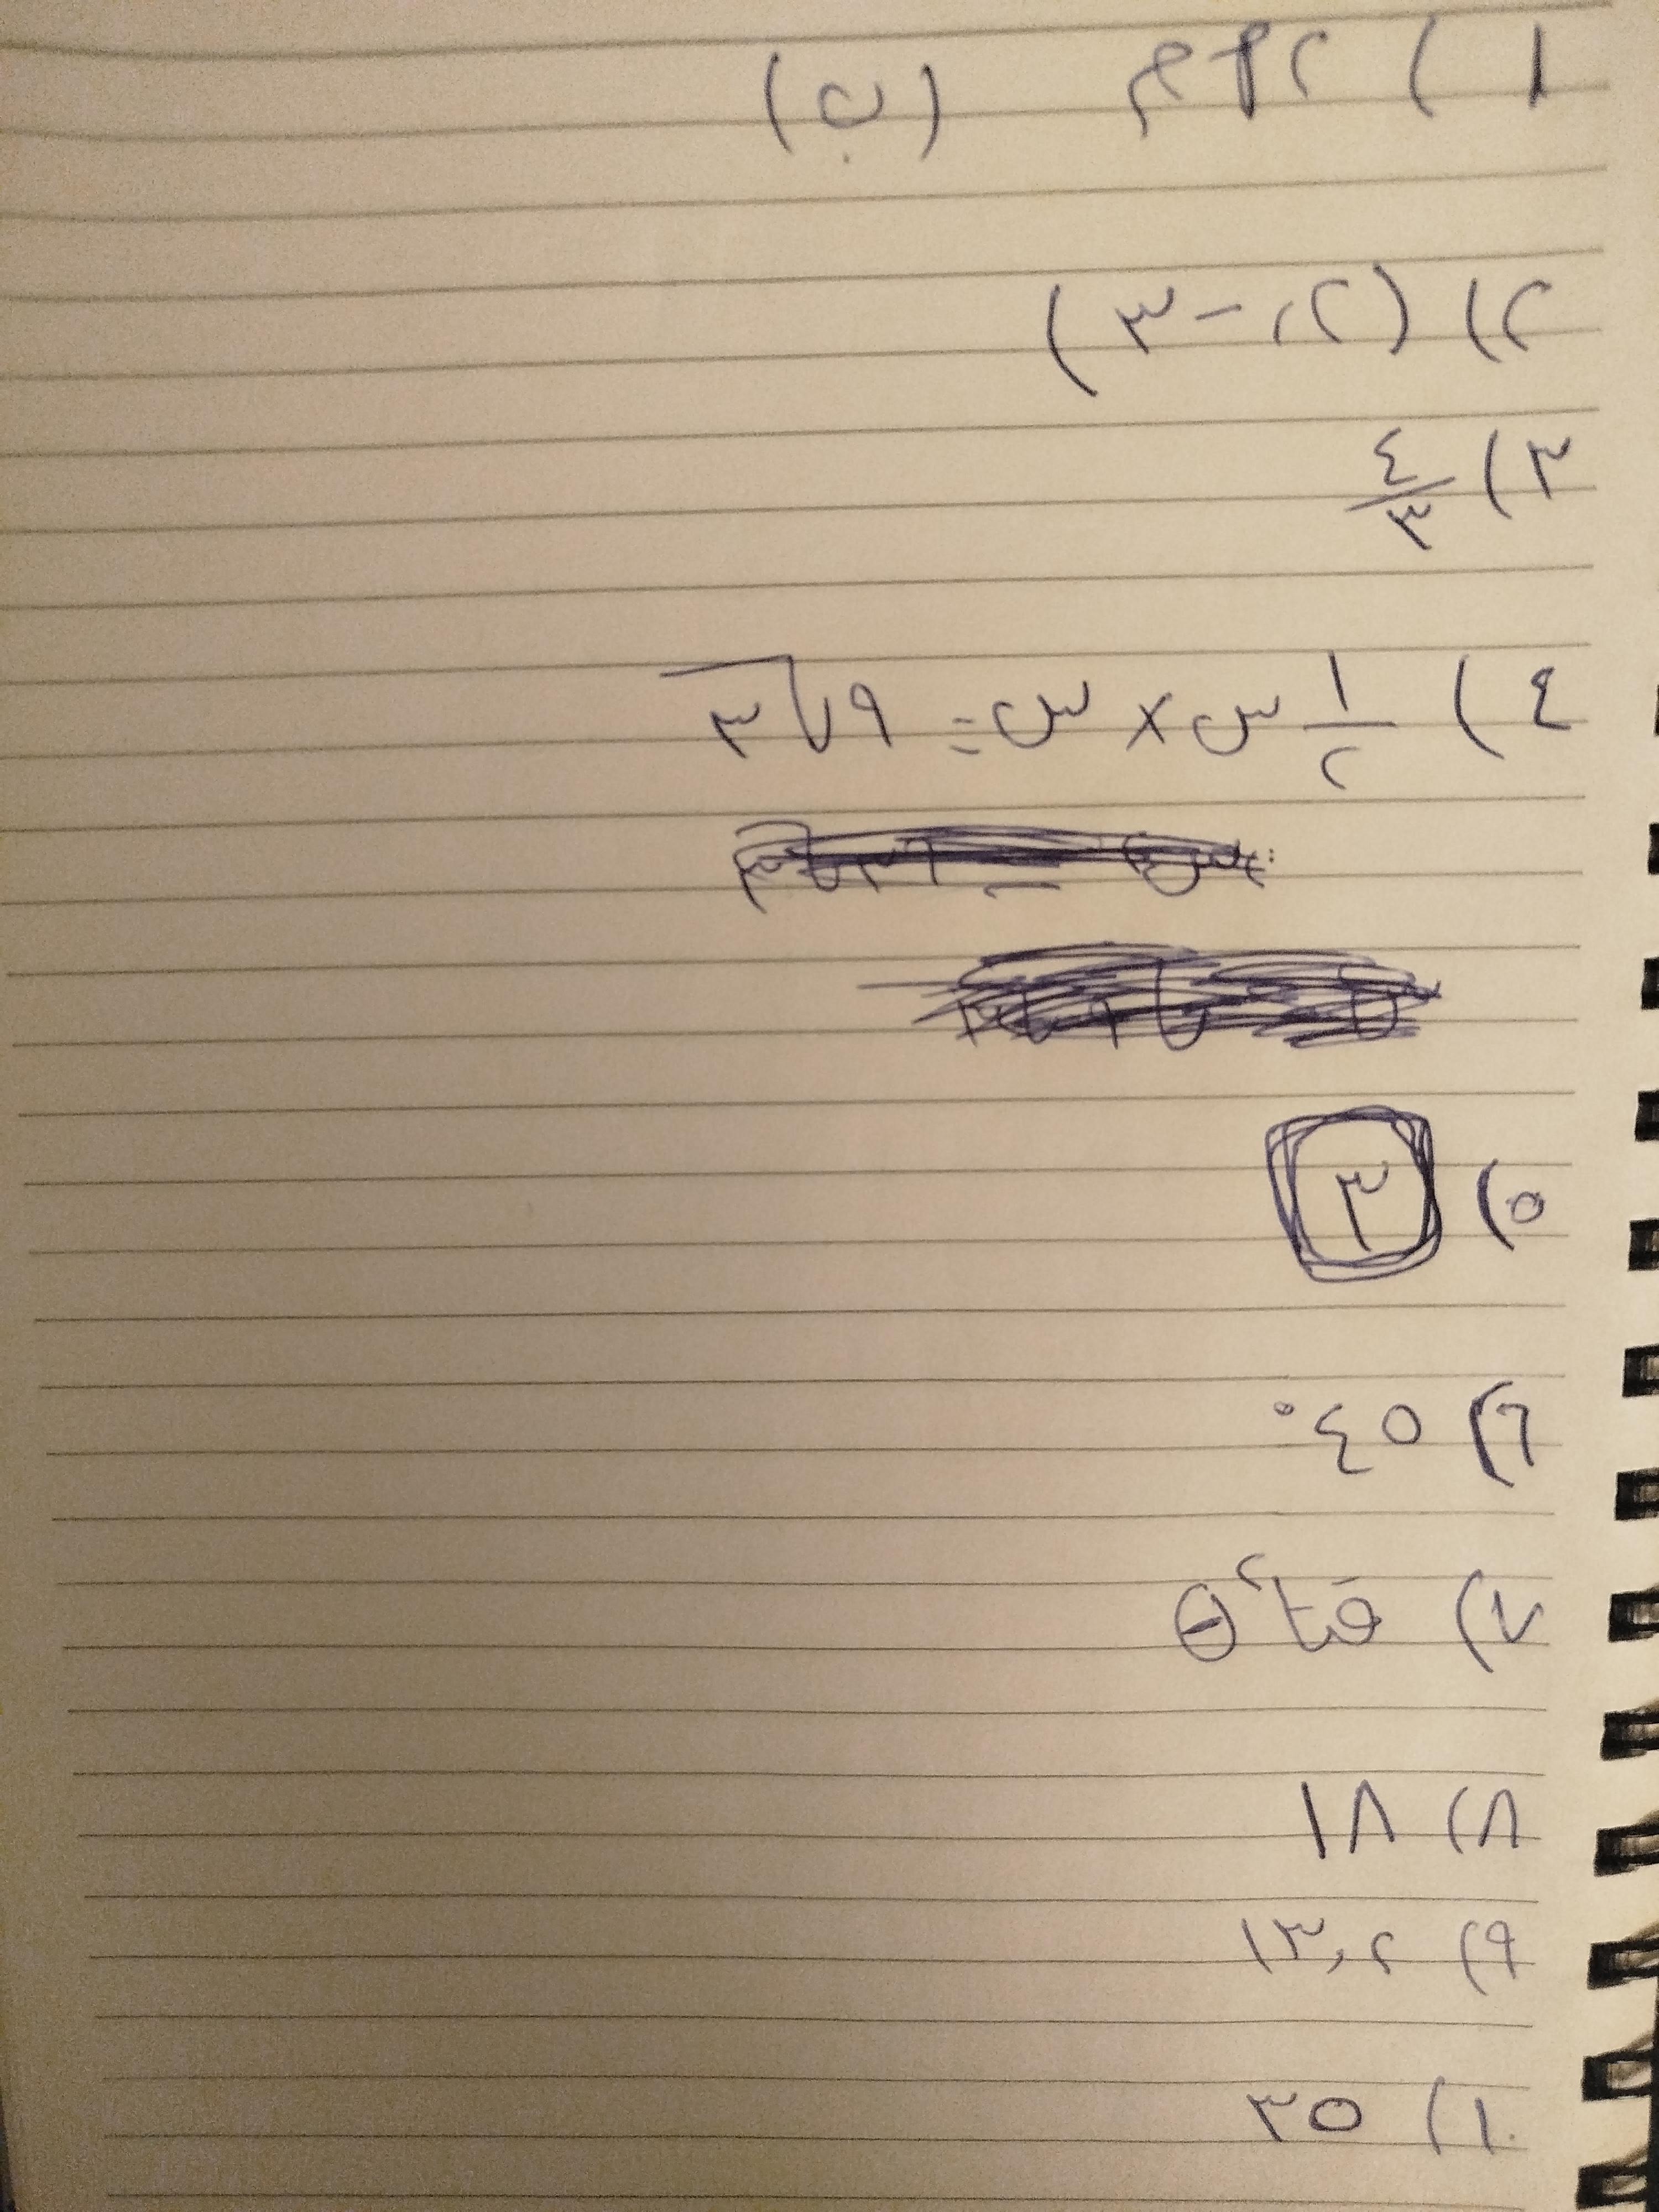 ١) ٢٢م (ب)
٢) (٢، -٣)
٣) ٤/٣
٤) ١/٢ س × س = ٩√٣
٥) ٣
٦) ٤٥°
٧) قتا²θ
٨) ١٨
٩) ١٣,٢
١٠) ٣٥